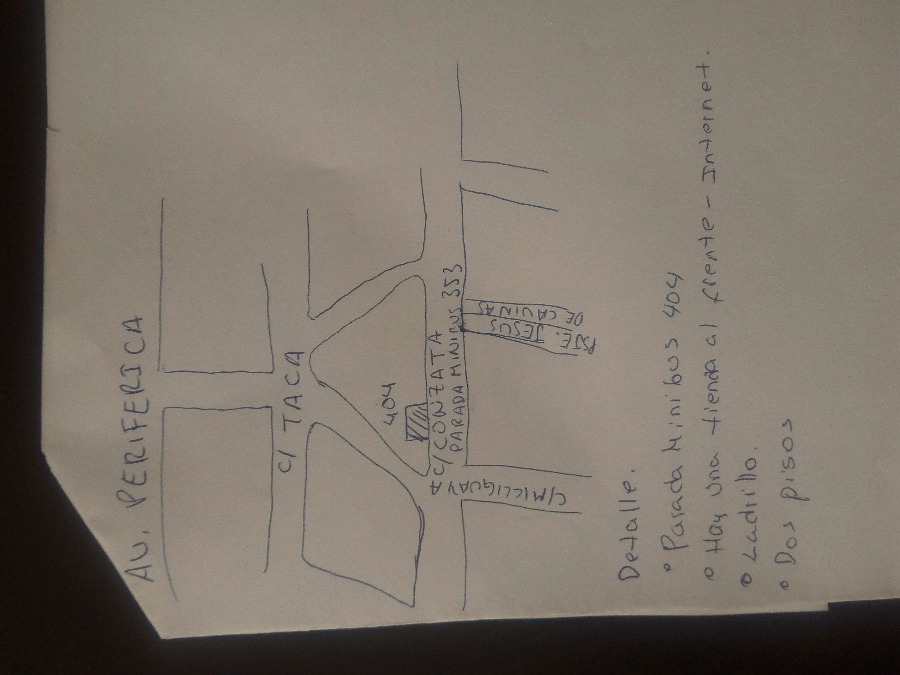 AV. PERIFERICA
C/ TACA
404
C/ CONZATA
PARADA MINIBUS 353
PSJE. JESUS
DE CAVINAS
C/MILLIGUAYA
Detalle.
• Parada Minibus 404
• Hay una tienda al frente - Internet.
• Ladrillo.
• Dos pisos